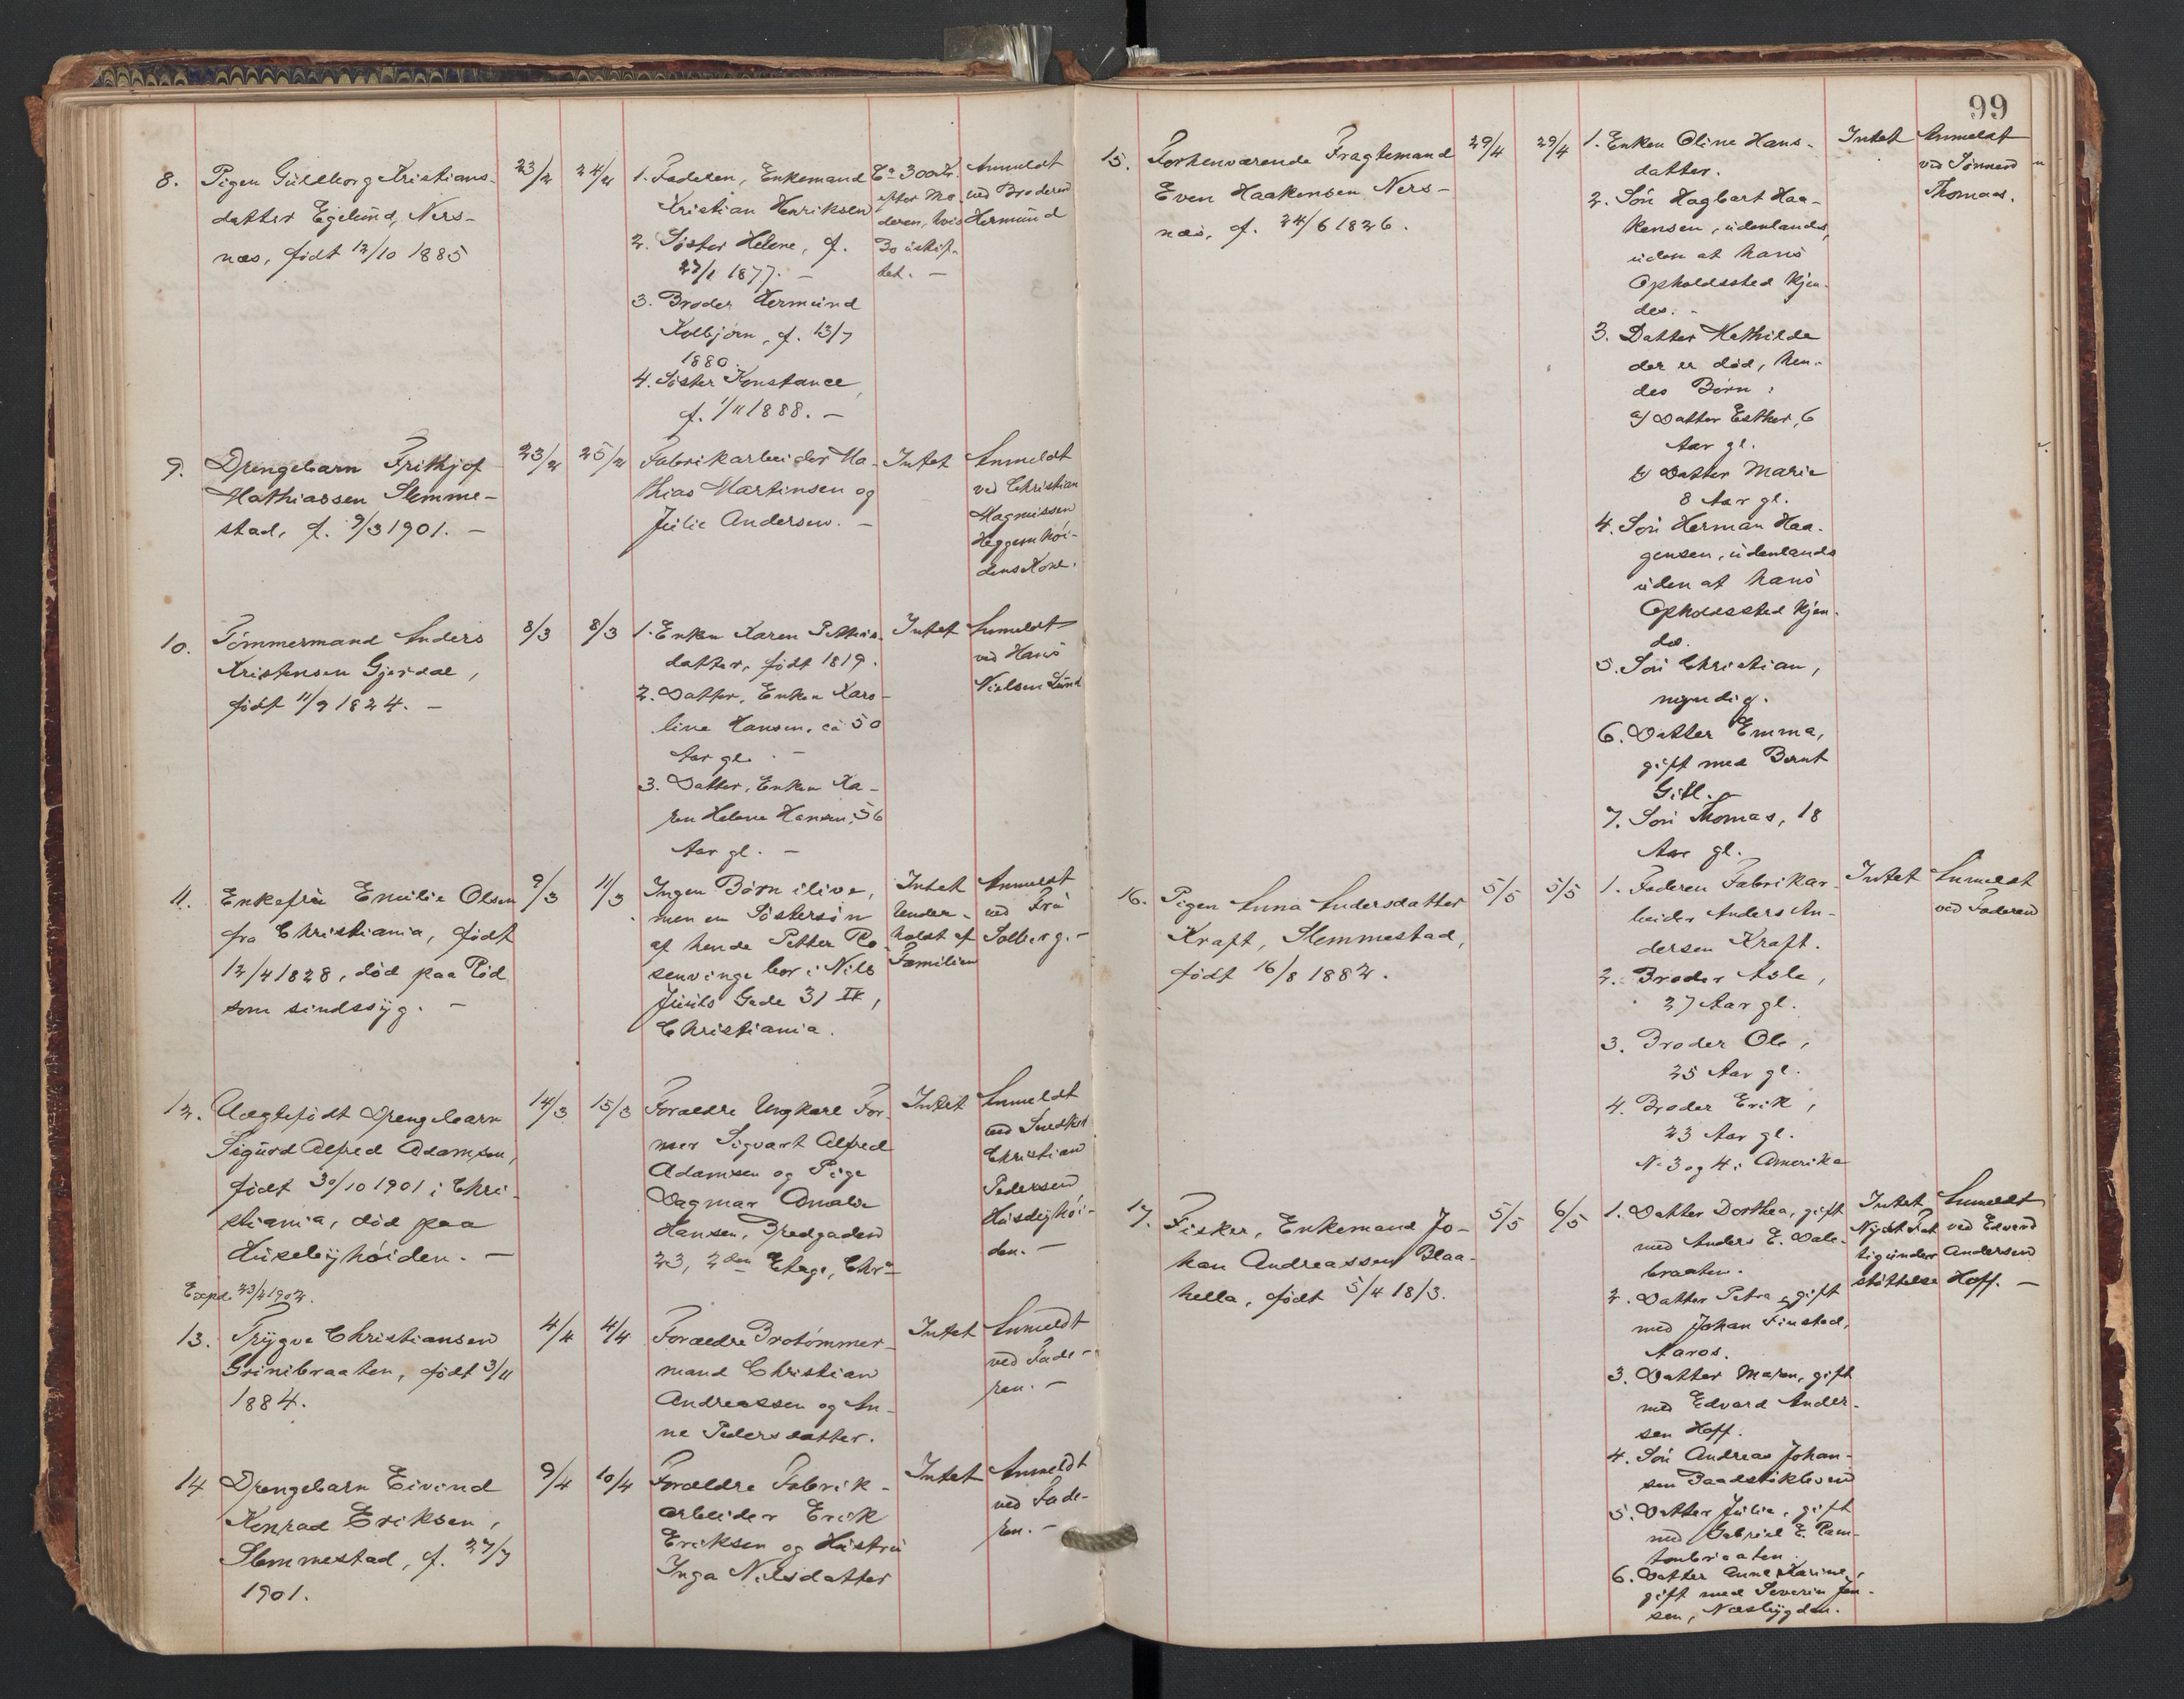 8.
Pigen Guldborg Kristians-
datter Egelund, Ners-
næs, født 12/10 1885
23/2
24/2
1. Faderen, Enkemand
Kristian Henriksen
2. Søster Helene, f.
27/1 1877. —
3. Broder Hermund
Kolbjørn, f. 13/7
1880.
4. Søster Konstance,
f. 1/11 1888. —
Ca 300 Kr.
efter Mo-
deren, hvis
Bo uskif-
tet. —
Anmeldt
ved Broderen
Hermund
9.
Drengebarn Frithjof
Mathiassen Slemme-
stad, f. 9/3 1901. —
23/2
25/2
Fabrikarbeider Ma-
thias Martinsen og
Julie Andersen. —
Intet
Anmeldt
ved Christian
Magnussen
Heggumhøi-
dens Kone.
10.
Tømmermand Anders
Kristensen Gjerdal,
født 11/9 1824. —
8/3
8/3
1. Enken Karen Petters-
datter, født 1819.
2. Datter, Enken Karo-
line Hansen, ca 50
Aar gl. —
3. Datter, Enken Ka-
ren Helene Hansen, 56
Aar gl. —
Intet
Anmeldt
ved Hans
Nielsen Lund
11.
Enkefru Emilie Olsen
fra Christiania, født
12/4 1828, død paa Rød
som sindssyg. —
9/3
11/3
Ingen Børn ilive,
men en Søstersøn
af hende Petter Ro-
senvinge bor i Nils
Juuls Gade 31 IV,
Christiania.
Intet
Under-
holdt af
Familien
Anmeldt
ved Fru
Solberg. —
12.
Uægtefødt Drengebarn
Sigurd Alfred Adamsen,
født 30/10 1901 i Chri-
stiania, død paa
Husebyhøiden. —
Expd. 23/4 1902.
14/3
15/3
Forældre Ungkarl For-
mer Sigvart Alfred
Adamsen og Pige
Dagmar Amalie
Hansen, Bredgaden
23, 2den Etage, Chra
Intet
Anmeldt
ved Snedker
Christian
Pedersen
Husebyhøi-
den. —
13.
Trygve Christiansen
Grinibraaten, født 3/11
1884.
4/4
4/4
Forældre Brotømmer-
mand Christian
Andreassen og An-
ne Pedersdatter.
Intet
Anmeldt
ved Fade-
ren. —
14
Drengebarn Eivind
Konrad Eriksen,
Slemmestad, f. 27/7
1901.
9/4
10/4
Forældre Fabrik-
arbeider Erik
Eriksen og Hustru
Inga Nilsdatter
Intet
Anmeldt
ved Fade-
ren. —
99
15.
Forhenværende Fragtemand
Even Haakensen Ners-
næs, f. 24/6 1826.
29/4
29/4
1. Enken Oline Hans-
datter.
2. Søn Hagbart Haa-
kensen, udenlands,
uden at hans
Opholdssted kjen-
des. -
3. Datter Mathilde
der er død, hen-
des Børn:
a) Datter Esther, 6
Aar gl.
b) Datter Marie
8 Aar gl.
4. Søn Herman Haa-
gensen, udenlands
uden at hans
Opholdssted kjen-
des.
5. Søn Christian,
myndig.
6. Datter Emma,
gift med Bernt
7. Søn Thomas, 18
Aar gl.
Intet
Anmeldt
ved Sønnen
Thomas.
16.
Pigen Anna Andersdatter
Kraft, Slemmestad,
født 16/8 1882.
5/5
5/5
1. Faderen Fabrikar-
beider Anders An-
dersen Kraft.
2. Broder Asle,
27 Aar gl.
3. Broder Ole,
25 Aar gl.
4. Broder Erik,
23 Aar gl.
No 3 og 4 i Amerika
Intet
Anmeldt
ved Faderen
17.
Fisker, Enkemand Jo-
han Andreassen Blaa-
hella, født 5/4 1813.
5/5
6/5
1. Datter Dorthea, gift
med Anders E. Dale-
braaten.
2. Datter Petra, gift
med Johan Finstad,
Aaros.
3. Datter Maren, gift
med Edvard Ander-
sen Hoff.
4. Søn Andreas Johan-
sen Baadstøkleven
5. Datter Julia, gift
med Gabriel E. Ram-
tonbraaten
6. Datter Anne Karine,
gift med Severin Jen-
sen, Næsbygden.
Intet
Nydt Fat-
tigunder-
støttelse
Anmeldt
ved Edvard
Andersen
Hoff. —